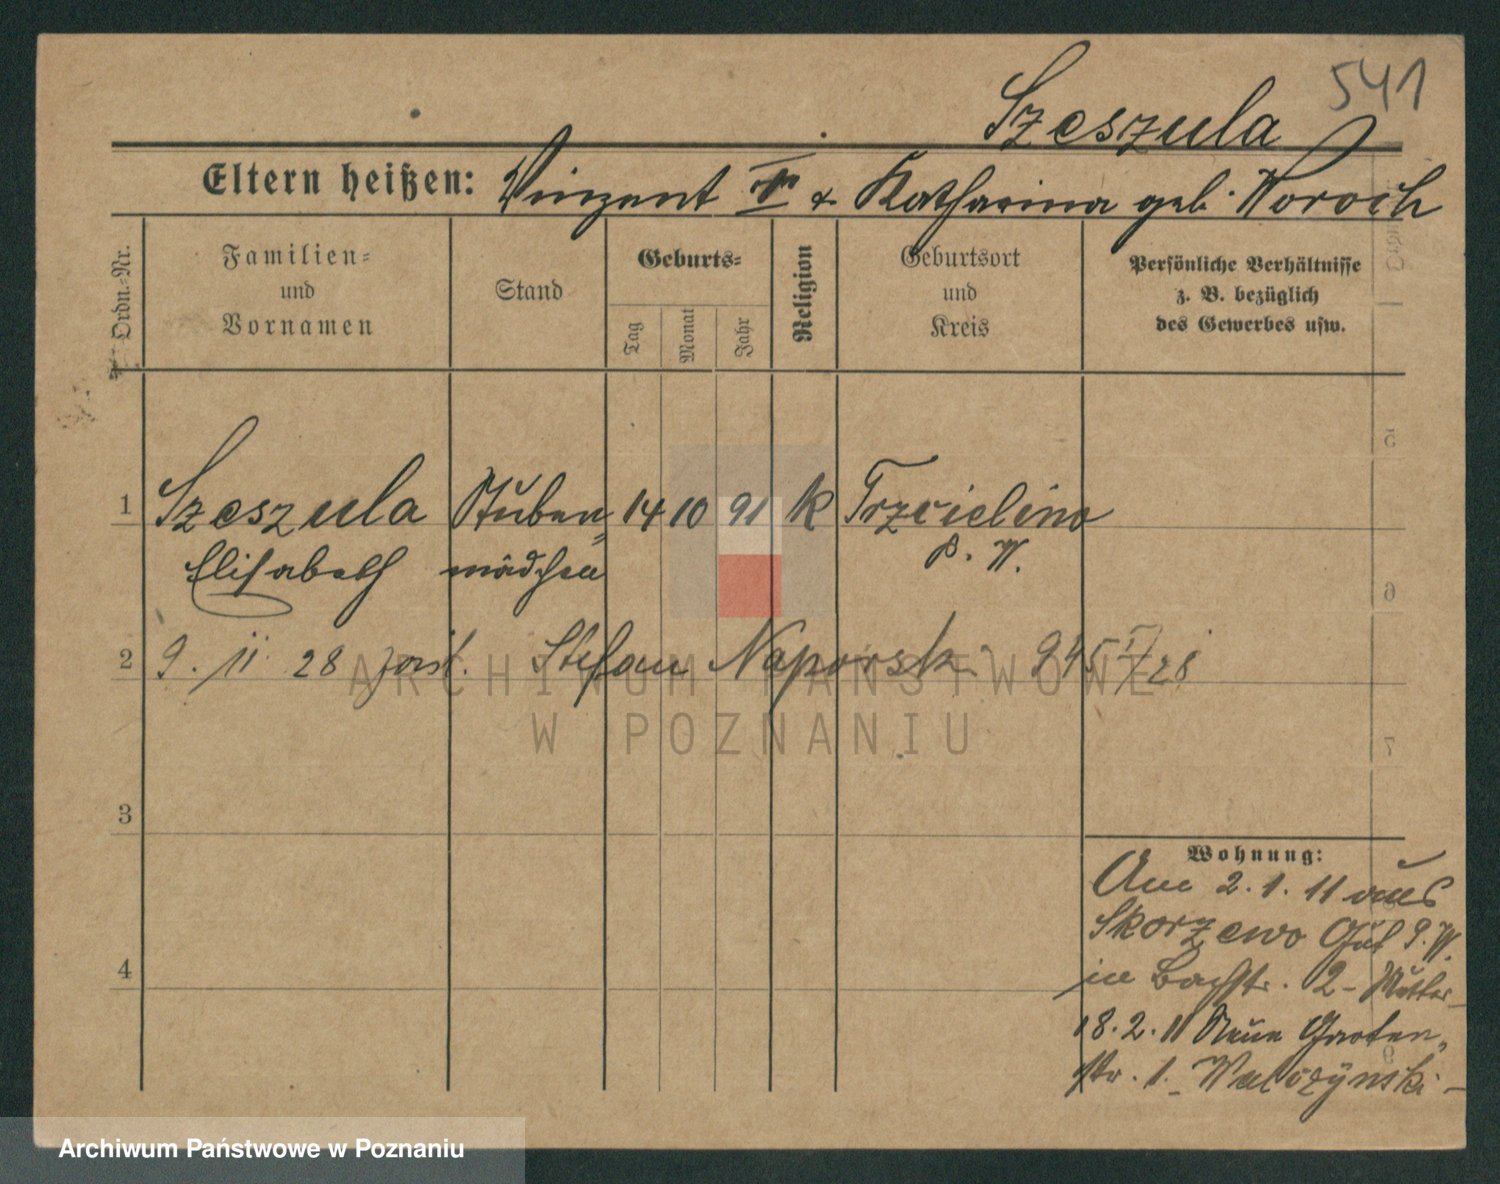 541
Szeszula
Eltern heißen: Vinzent & Katharina geb. Woroch
Ordn.-Nr.
Familien=
und
Vornamen
Stand
Geburts=
Tag
Monat
Jahr
Religion
Geburtsort
und
Kreis
Persönliche Verhältnisse
z. B. bezüglich
des Gewerbes usw.
1 Szeszula Stuben= 14 10 91 k Trzcielino
Elisabeth mädchen P. W.
2 9. 11 28 Stefan Naporski 945 I/28
3
4
Wohnung:
Am 2. 1. 11 aus
Skorzewo Gut P. W.
in Bachstr. 2 - Mutter -
18. 2. 11 Neue Garten=
str. 1. - Walczynski -
ARCHIWUM PAŃSTWOWE
W POZNANIU
Archiwum Państwowe w Poznaniu